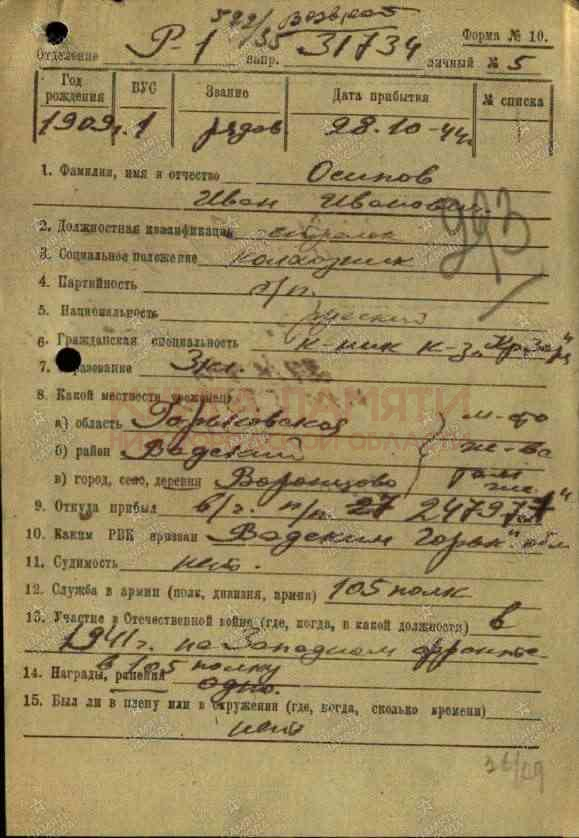 522/35 Возврат
Форма № 10.
Отделение Р-1 напр. 31734 личный № 5
Год рождения
ВУС
Звание
Дата прибытия
№ списка
1909г. 1 рядов. 28.10-44г.
1. Фамилия, имя и отчество Осипов
Иван Иванович.
993
2. Должностная квалификация стрелок
3. Социальное положение колхозник
4. Партийность б/п.
5. Национальность русский
6. Гражданская специальность к-ник к-за
7. разование 3кл.
8. Какой местности уроженец
КНИГА ПАМЯТИ
НИЖЕГОРОДСКОЙ ОБЛАСТИ
а) область Горьковской м-то
б) район Вадский ж-ва
в) город, село, деревня Воронцово там же
9. Откуда прибыл в/ч. п/п. 27 24797
10. Каким РВК призван Вадским Горьк. обл.
11. Судимость нет.
12. Служба в армии (полк, дивизия, армия) 105 полк
13. Участие в Отечественной войне (где, когда, в какой должности) в
1941г. на Западном фронте
в 105 полку
14. Награды, ранения одно.
15. Был ли в плену или в окружении (где, когда, сколько времени)
нет